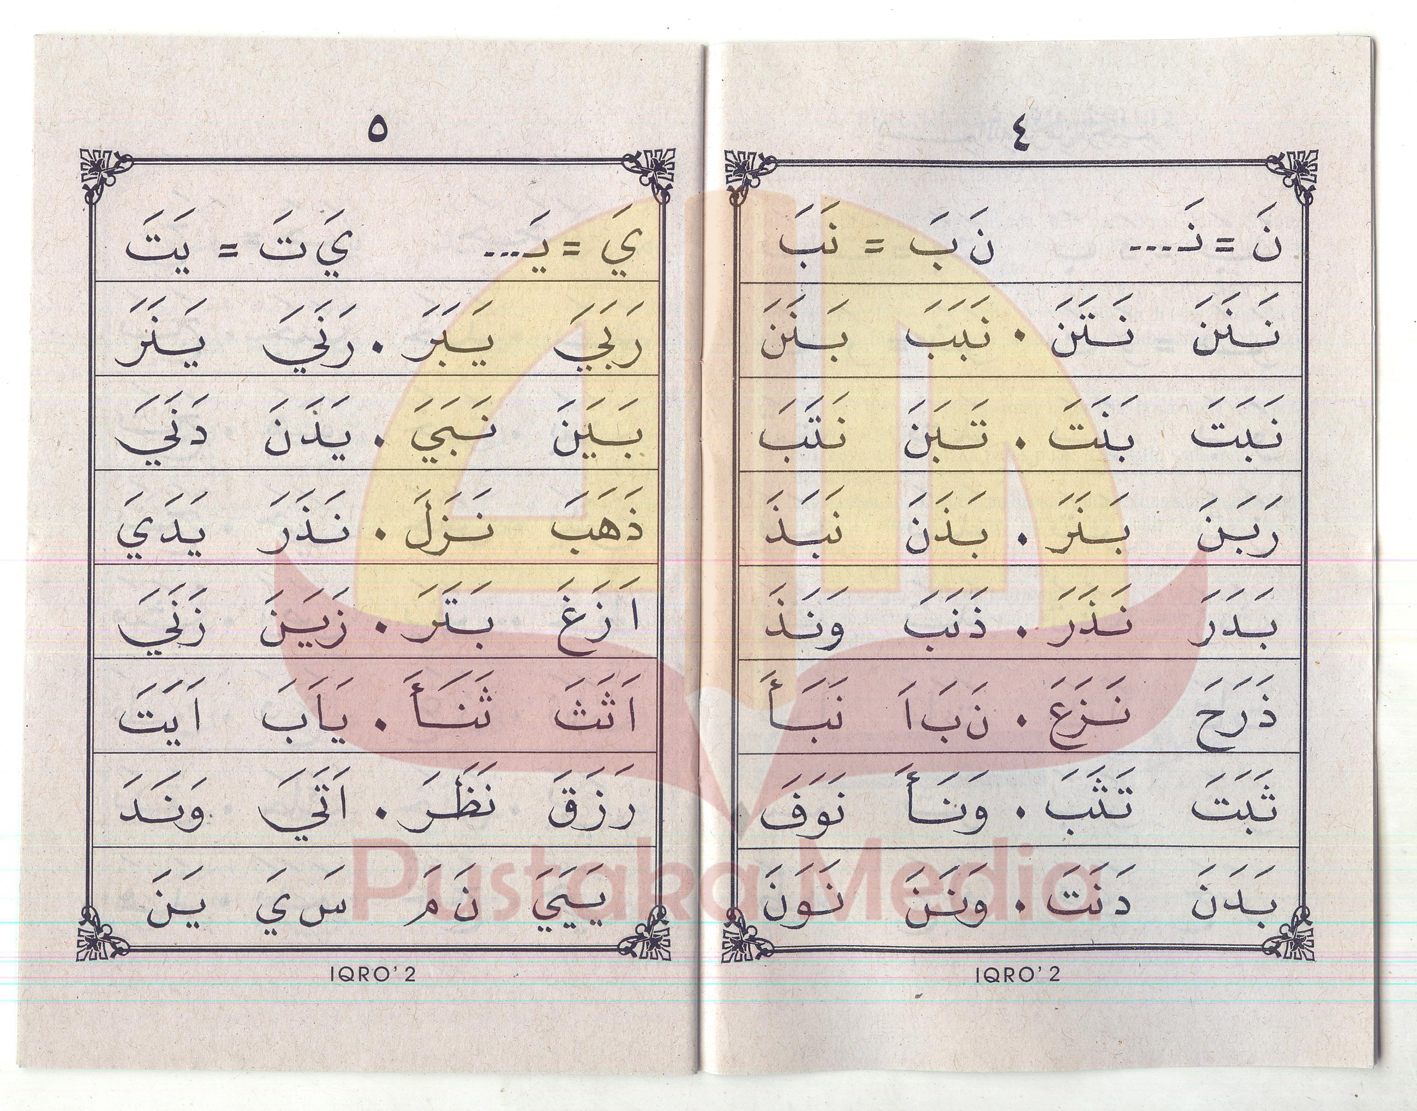 ٤
نَ = نَـ... نَ بَ = نَبَ
نَنَنَ نَتَنَ . نَبَبَ بَنَنَ
نَبَتَ بَنَتَ . تَبَنَ نَتَبَ
رَبَنَ بَنَرَ . بَذَنَ نَبَذَ
بَدَرَ نَذَرَ . ذَنَبَ وَنَذَ
ذَرَحَ نَزَعَ . نَ بَ اَ نَبَأَ
ثَبَتَ تَثَبَ . وَنَأَ نَوَفَ
بَدَنَ دَنَتَ . وَنَنَ نَوَنَ
IQRO' 2
٥
يَ = يَـ... يَ تَ = يَتَ
رَبَيَ يَبَرَ . رَنَيَ يَنَرَ
بَيَنَ نَبَيَ . يَذَنَ دَنَيَ
ذَهَبَ نَزَلَ . نَذَرَ يَدَيَ
اَزَغَ بَتَرَ . زَيَنَ زَنَيَ
اَثَثَ ثَنَأَ . يَاَبَ اَيَتَ
رَزَقَ نَظَرَ . اَتَيَ وَنَدَ
يَيَيَ نَ مَ سَ يَ يَنَ
IQRO' 2
Pustaka Media